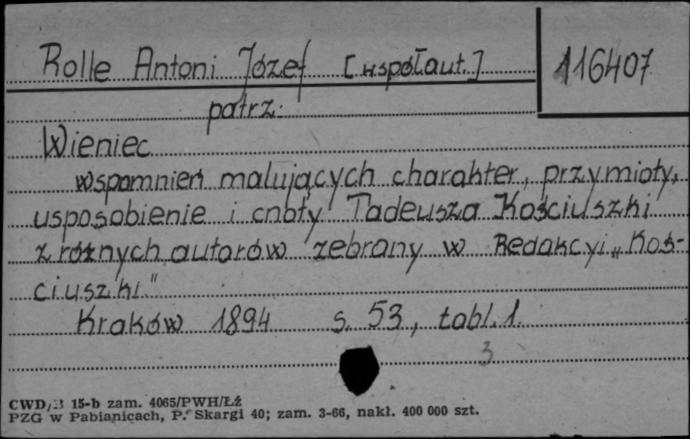 Rolle Antoni Józef [współaut.] 116407
patrz:
Wieniec
wspomnień malujących charakter, przymioty,
usposobienie i cnoty Tadeusza Kościuszki
z różnych autorów zebrany w Redakcyi „Koś-
ciuszki"
Kraków 1894 s. 53, tabl. 1.
3
CWD/B 15-b zam. 4065/PWH/Łź
PZG w Pabianicach, P. Skargi 40; zam. 3-66, nakł. 400 000 szt.